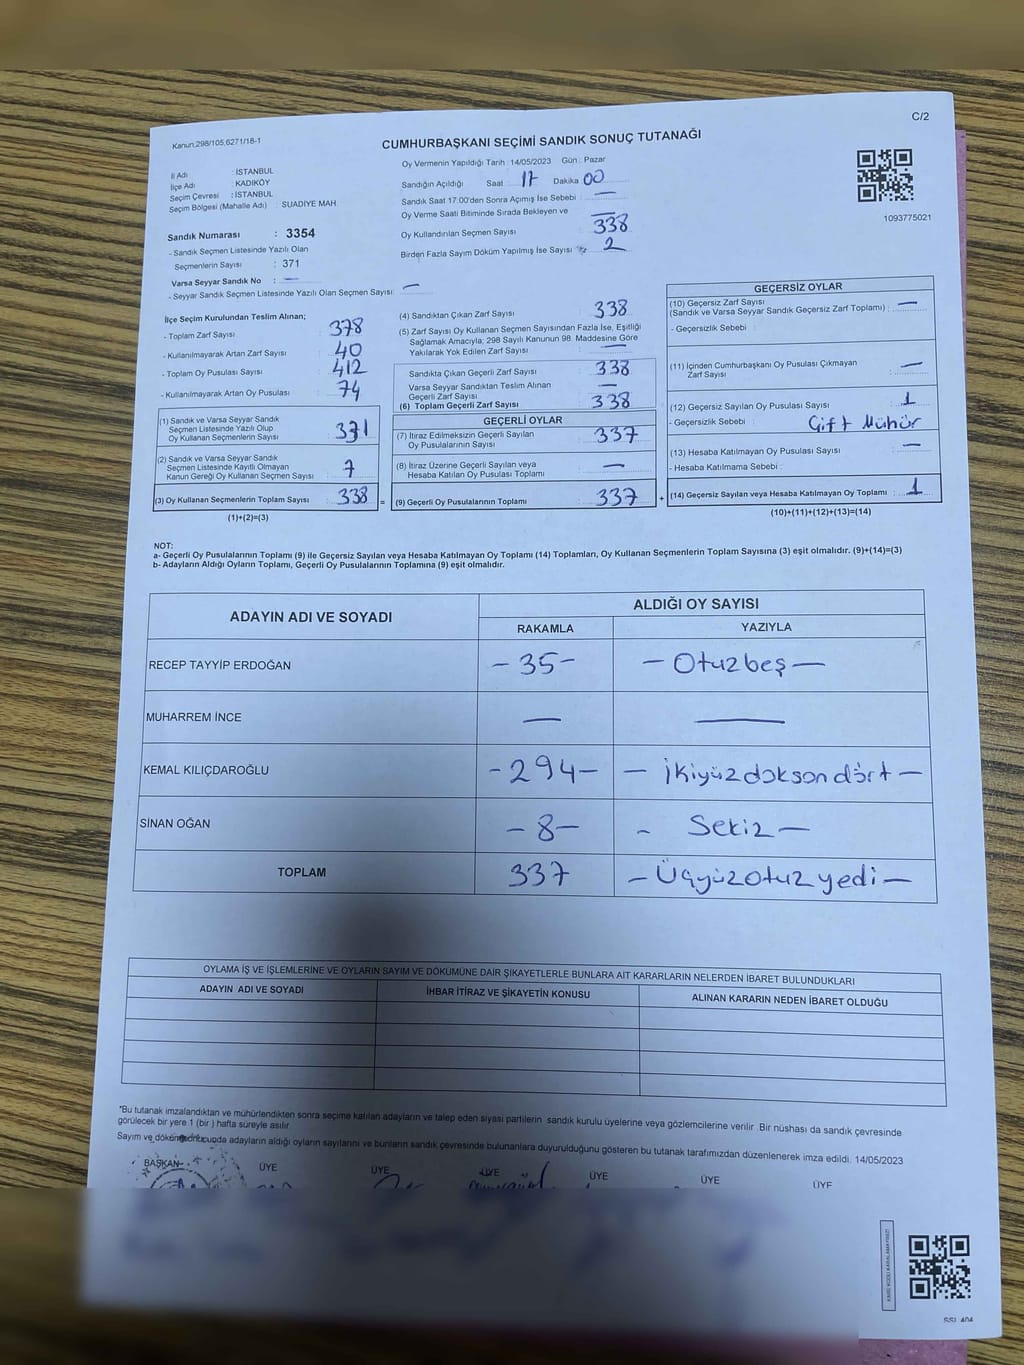 C/2
Kanun:298/105,6271/18-1
CUMHURBAŞKANI SEÇİMİ SANDIK SONUÇ TUTANAĞI
İl Adı : İSTANBUL
İlçe Adı : KADIKÖY
Seçim Çevresi : İSTANBUL
Seçim Bölgesi (Mahalle Adı) : SUADİYE MAH.
Oy Vermenin Yapıldığı Tarih : 14/05/2023 Gün : Pazar
Sandığın Açıldığı Saat 17 Dakika 00
Sandık Saat 17:00'den Sonra Açımış İse Sebebi : —
Oy Verme Saati Bitiminde Sırada Bekleyen ve —
Oy Kullandırılan Seçmen Sayısı 338
Birden Fazla Sayım Döküm Yapılmış İse Sayısı 2
1093775021
Sandık Numarası : 3354
- Sandık Seçmen Listesinde Yazılı Olan
Seçmenlerin Sayısı : 371
Varsa Seyyar Sandık No : —
- Seyyar Sandık Seçmen Listesinde Yazılı Olan Seçmen Sayısı: —
İlçe Seçim Kurulundan Teslim Alınan;
- Toplam Zarf Sayısı : 378
- Kullanılmayarak Artan Zarf Sayısı : 40
- Toplam Oy Pusulası Sayısı : 412
- Kullanılmayarak Artan Oy Pusulası : 74
(1) Sandık ve Varsa Seyyar Sandık
Seçmen Listesinde Yazılı Olup
Oy Kullanan Seçmenlerin Sayısı : 331
(2) Sandık ve Varsa Seyyar Sandık
Seçmen Listesinde Kayıtlı Olmayan
Kanun Gereği Oy Kullanan Seçmen Sayısı : 7
(3) Oy Kullanan Seçmenlerin Toplam Sayısı : 338
(1)+(2)=(3)
(4) Sandıktan Çıkan Zarf Sayısı : 338
(5) Zarf Sayısı Oy Kullanan Seçmen Sayısından Fazla İse, Eşitliği
Sağlamak Amacıyla; 298 Sayılı Kanunun 98. Maddesine Göre
Yakılarak Yok Edilen Zarf Sayısı : —
Sandıkta Çıkan Geçerli Zarf Sayısı : 338
Varsa Seyyar Sandıktan Teslim Alınan
Geçerli Zarf Sayısı : —
(6) Toplam Geçerli Zarf Sayısı : 338
GEÇERLİ OYLAR
(7) İtiraz Edilmeksizin Geçerli Sayılan
Oy Pusulalarının Sayısı : 337
(8) İtiraz Üzerine Geçerli Sayılan veya
Hesaba Katılan Oy Pusulası Toplamı : —
= (9) Geçerli Oy Pusulalarının Toplamı : 337 +
GEÇERSİZ OYLAR
(10) Geçersiz Zarf Sayısı
(Sandık ve Varsa Seyyar Sandık Geçersiz Zarf Toplamı) : —
- Geçersizlik Sebebi :
(11) İçinden Cumhurbaşkanı Oy Pusulası Çıkmayan
Zarf Sayısı : —
(12) Geçersiz Sayılan Oy Pusulası Sayısı : 1
- Geçersizlik Sebebi : Çift Mühür
(13) Hesaba Katılmayan Oy Pusulası Sayısı : —
- Hesaba Katılmama Sebebi :
(14) Geçersiz Sayılan veya Hesaba Katılmayan Oy Toplamı : 1
(10)+(11)+(12)+(13)=(14)
NOT:
a- Geçerli Oy Pusulalarının Toplamı (9) ile Geçersiz Sayılan veya Hesaba Katılmayan Oy Toplamı (14) Toplamları, Oy Kullanan Seçmenlerin Toplam Sayısına (3) eşit olmalıdır. (9)+(14)=(3)
b- Adayların Aldığı Oyların Toplamı, Geçerli Oy Pusulalarının Toplamına (9) eşit olmalıdır.
ADAYIN ADI VE SOYADI ALDIĞI OY SAYISI
RAKAMLA YAZIYLA
RECEP TAYYİP ERDOĞAN - 35 - - Otuzbeş -
MUHARREM İNCE — —
KEMAL KILIÇDAROĞLU - 294 - - İkiyüzdoksandört -
SİNAN OĞAN - 8 - - Sekiz -
TOPLAM 337 - Üçyüzotuzyedi -
OYLAMA İŞ VE İŞLEMLERİNE VE OYLARIN SAYIM VE DÖKÜMÜNE DAİR ŞİKAYETLERLE BUNLARA AİT KARARLARIN NELERDEN İBARET BULUNDUKLARI
ADAYIN ADI VE SOYADI İHBAR İTİRAZ VE ŞİKAYETİN KONUSU ALINAN KARARIN NEDEN İBARET OLDUĞU
*Bu tutanak imzalandıktan ve mühürlendikten sonra seçime katılan adayların ve talep eden siyasi partilerin sandık kurulu üyelerine veya gözlemcilerine verilir. Bir nüshası da sandık çevresinde
görülecek bir yere 1 (bir) hafta süreyle asılır.
Sayım ve dökümün sonucunda adayların aldığı oyların sayılarını ve bunların sandık çevresinde bulunanlara duyurulduğunu gösteren bu tutanak tarafımızdan düzenlenerek imza edildi. 14/05/2023
BAŞKAN ÜYE ÜYE ÜYE ÜYE ÜYE ÜYE